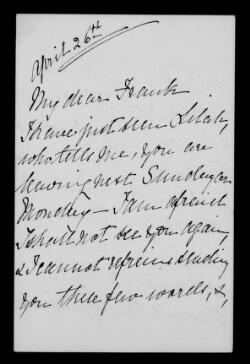 April 26th
My dear Frank
I have just seen Lilah,
who tells me, you are
leaving next Sunday or
Monday — I am afraid
I shall not see you again,
& I cannot refrain sending
you these few words, &,